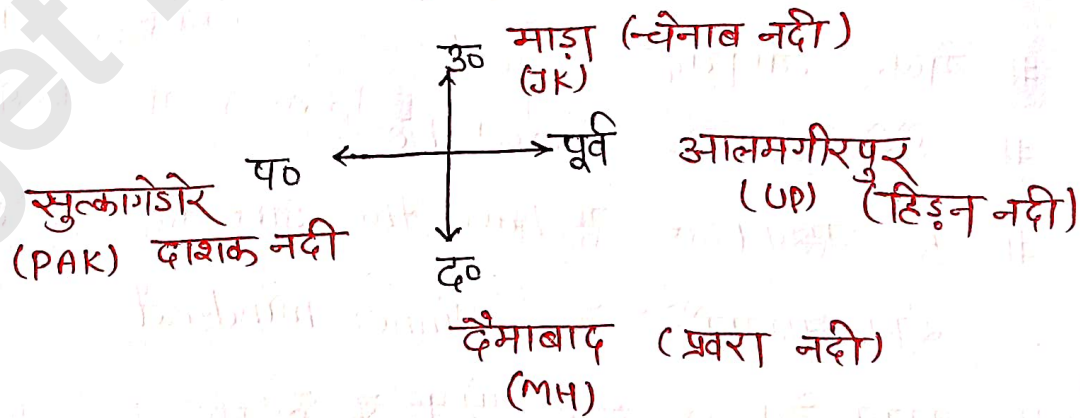 उ० माड़ा (चेनाब नदी)
(JK)
प० पूर्व आलमगीरपुर
(UP) (हिड़न नदी)
सुत्कागेडोर
(PAK) दाशक नदी
द०
दैमाबाद (प्रवरा नदी)
(MH)